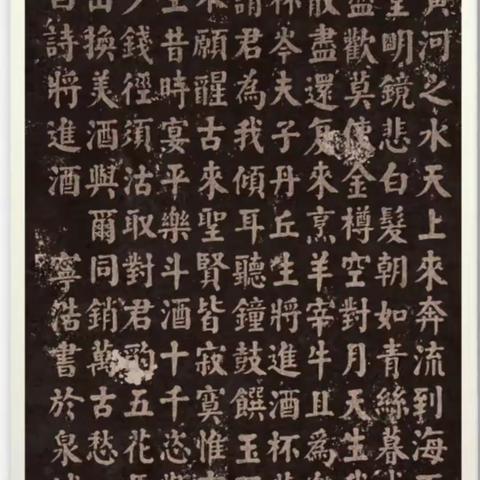 黃河之水天上來奔流到海不
堂明鏡悲白髮朝如青絲暮成
盡歡莫使金樽空對月天生我
散盡還复來烹羊宰牛且為樂
杯岑夫子丹丘生將進酒杯莫
請君為我傾耳聽鐘鼓饌玉不
不願醒古來聖賢皆寂寞惟有
王昔時宴平樂斗酒十千恣歡
少錢徑須沽取對君酌五花馬
出換美酒與爾同銷萬古愁
白詩將進酒 寧浩書於泉城